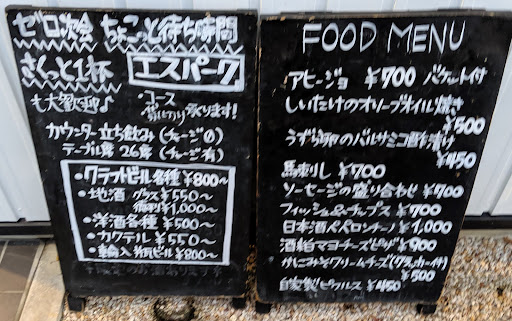 ゼロ次会 ちょこっと待ち時間
さくっと1杯 エスパーク
も大歓迎♪
コース
貸し切り承ります!
カウンター立ち飲み (チャージ0)
テーブル席 26席 (チャージ有)
・クラフトビール各種 ¥800～
・地酒 グラス¥550～
¥1,000～
・洋酒各種 ¥500～
・カクテル ¥550～
・輸入 瓶ビール ¥800～
FOOD MENU
アヒージョ ¥700 バケット付
しいたけのオリーブオイル焼き
¥500
うずら卵のバルサミコ酢漬け
¥450
馬刺し ¥700
ソーセージの盛り合わせ ¥700
フィッシュ&チップス ¥700
日本酒ペペロンチーノ ¥1,000
酒粕マヨチーズピザ ¥900
かにみそクリームチーズ(クラッカー付)
¥500
自家製ピクルス ¥450